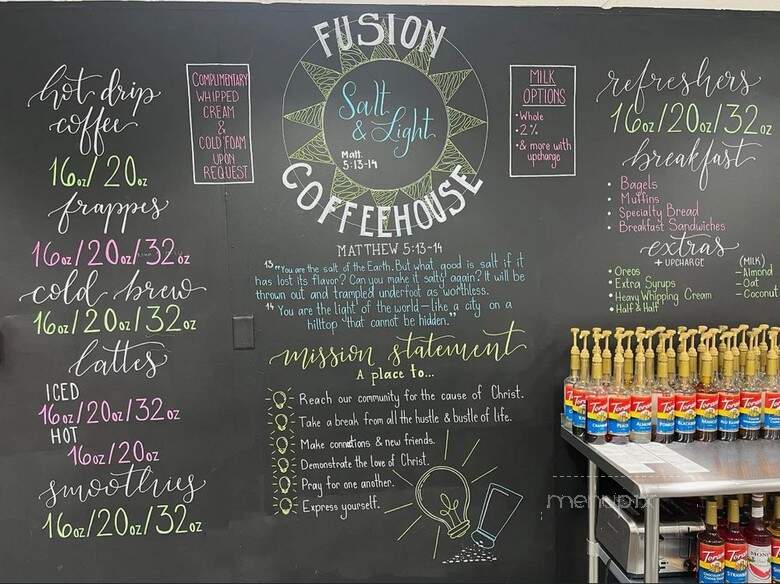 hot drip
coffee
16oz/20oz
frappes
16oz/20oz/32oz
cold brew
16oz/20oz/32oz
lattes
ICED
16oz/20oz/32oz
HOT
16oz/20oz
smoothies
16oz/20oz/32oz
COMPLIMENTARY
WHIPPED
CREAM
&
COLD FOAM
UPON
REQUEST
FUSION
Salt
& Light
Matt.
5:13-14
COFFEEHOUSE
MATTHEW 5:13-14
13 "You are the salt of the Earth. But what good is salt if it
has lost its flavor? Can you make it salty again? It will be
thrown out and trampled underfoot as worthless.
14 You are the light of the world - like a city on a
hilltop that cannot be hidden."
mission statement
A place to...
Reach our community for the cause of Christ.
Take a break from all the hustle & bustle of life.
Make connections & new friends.
Demonstrate the love of Christ.
Pray for one another.
Express yourself.
MILK
OPTIONS
• Whole
• 2%
• & more with
upcharge
refreshers
16oz/20oz/32oz
breakfast
• Bagels
• Muffins
• Specialty Bread
• Breakfast Sandwiches
extras
+ UPCHARGE
• Oreos
• Extra Syrups
• Heavy Whipping Cream
• Half & Half
(MILK)
- Almond
- Oat
- Coconut
Torani
Torani
Torani
Torani
Torani
Torani
Torani
Torani
Torani
Torani
menupix